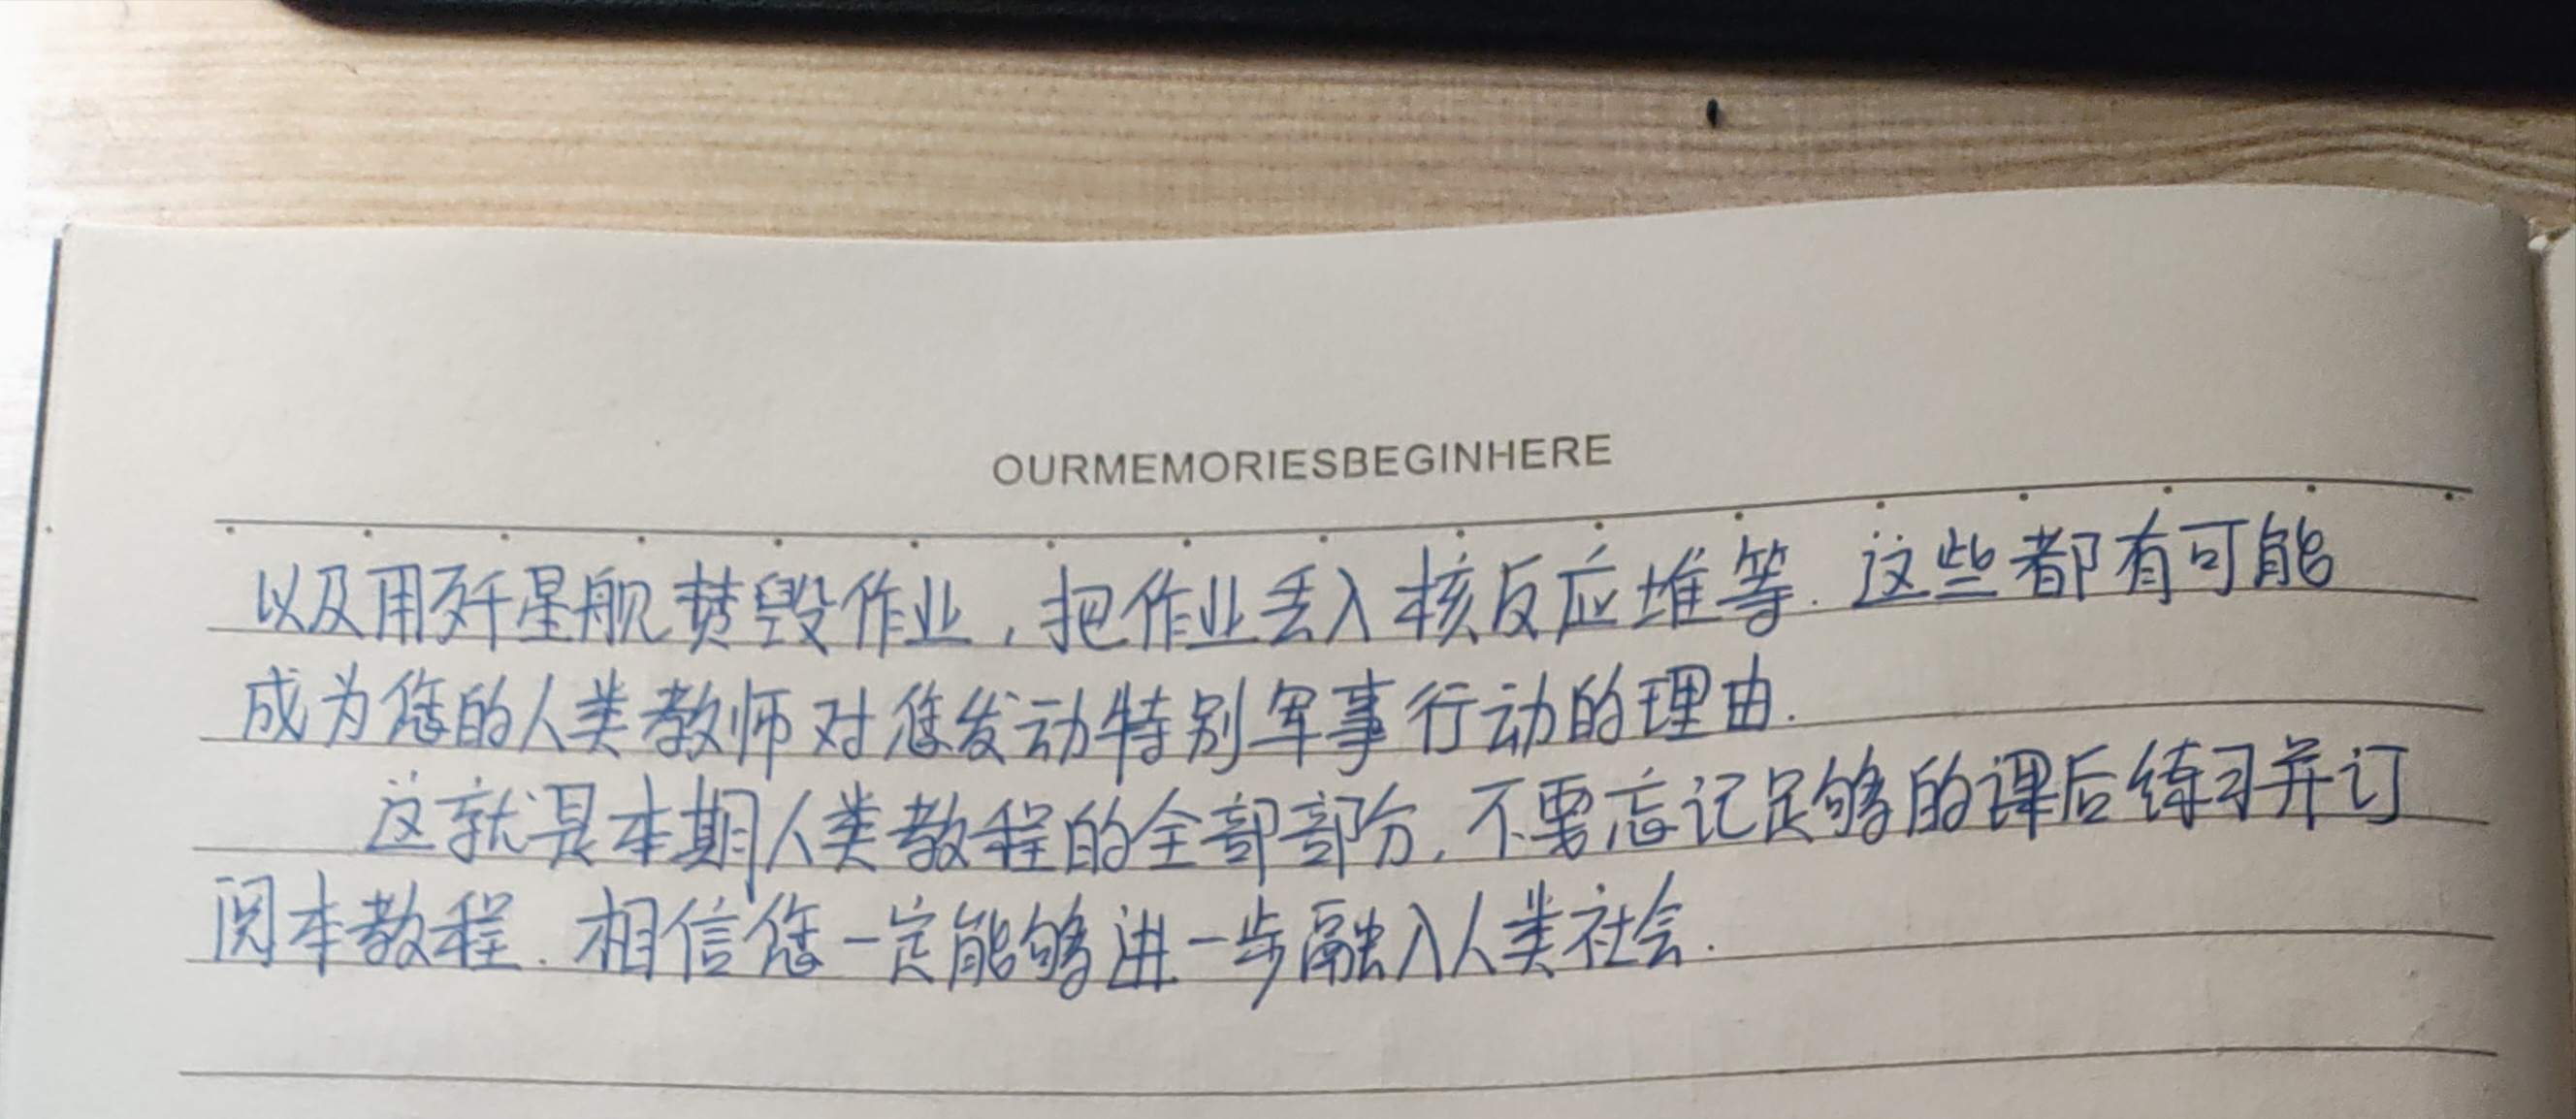 OURMEMORIESBEGINHERE
以及用歼星舰焚毁作业,把作业丢入核反应堆等.这些都有可能
成为您的人类教师对您发动特别军事行动的理由.
这就是本期人类教程的全部部分,不要忘记足够的课后练习并订
阅本教程.相信您一定能够进一步融入人类社会.